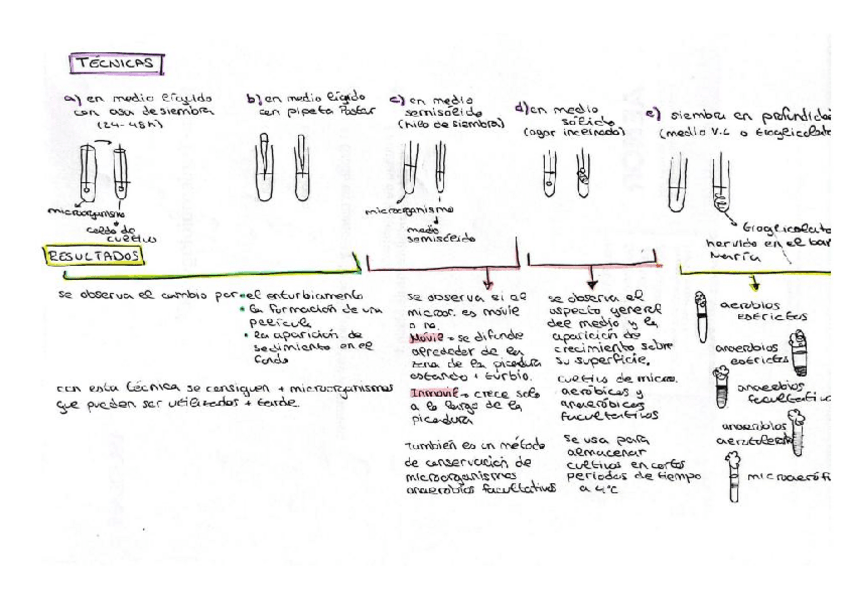 TÉCNICAS
a) en medio líquido
con asa de siembra
(24-48h)
microorganismo
caldo de
cultivo
b) en medio líquido
con pipeta Pasteur
c) en medio
semisólido
(hilo de siembra)
microorganismo
medio
semisólido
d) en medio
sólido
(agar inclinado)
e) siembra en profundidad
(medio V.L o tioglicolato
tioglicolato
hervido en el bañ
María
RESULTADOS
se observa el cambio por • el enturbiamiento
• la formación de una
película
• la aparición de
sedimiento en el
fondo
con esta técnica se consiguen + microorganismos
que pueden ser utilizados + tarde.
se observa si el
micror. es móvile
o no.
Móvil → se difunde
alrededor de la
zona de la picadura
estando + turbio.
Inmovil → crece solo
a lo largo de la
picadura
También es un método
de conservación de
microorganismos
anaerobios facultativos
se observa el
aspecto general
del medio y la
aparición de
crecimiento sobre
su superficie.
cultivo de micro.
aeróbicos y
anaeróbicos
facultativos
se usa para
almacenar
cultivos en cortos
periodos de tiempo
a 4°C
aerobios
estrictos
anaerobios
estrictos
anaerobios
facultativo
anaerobios
aerotoleran
microaerófi